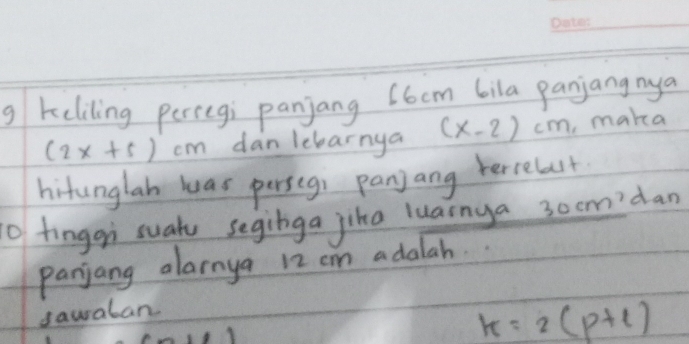 Date:
9 keliling persegi panjang 66cm bila panjangnya
(2x+5) cm dan lebarnya (x-2) cm, maka
hitunglah luas persegi panjang tersebut.
10 tinggi suatu segitiga jika luasnya 30cm² dan
panjang alasnya 12 cm adalah...
Jawaban
k = 2(p+l)